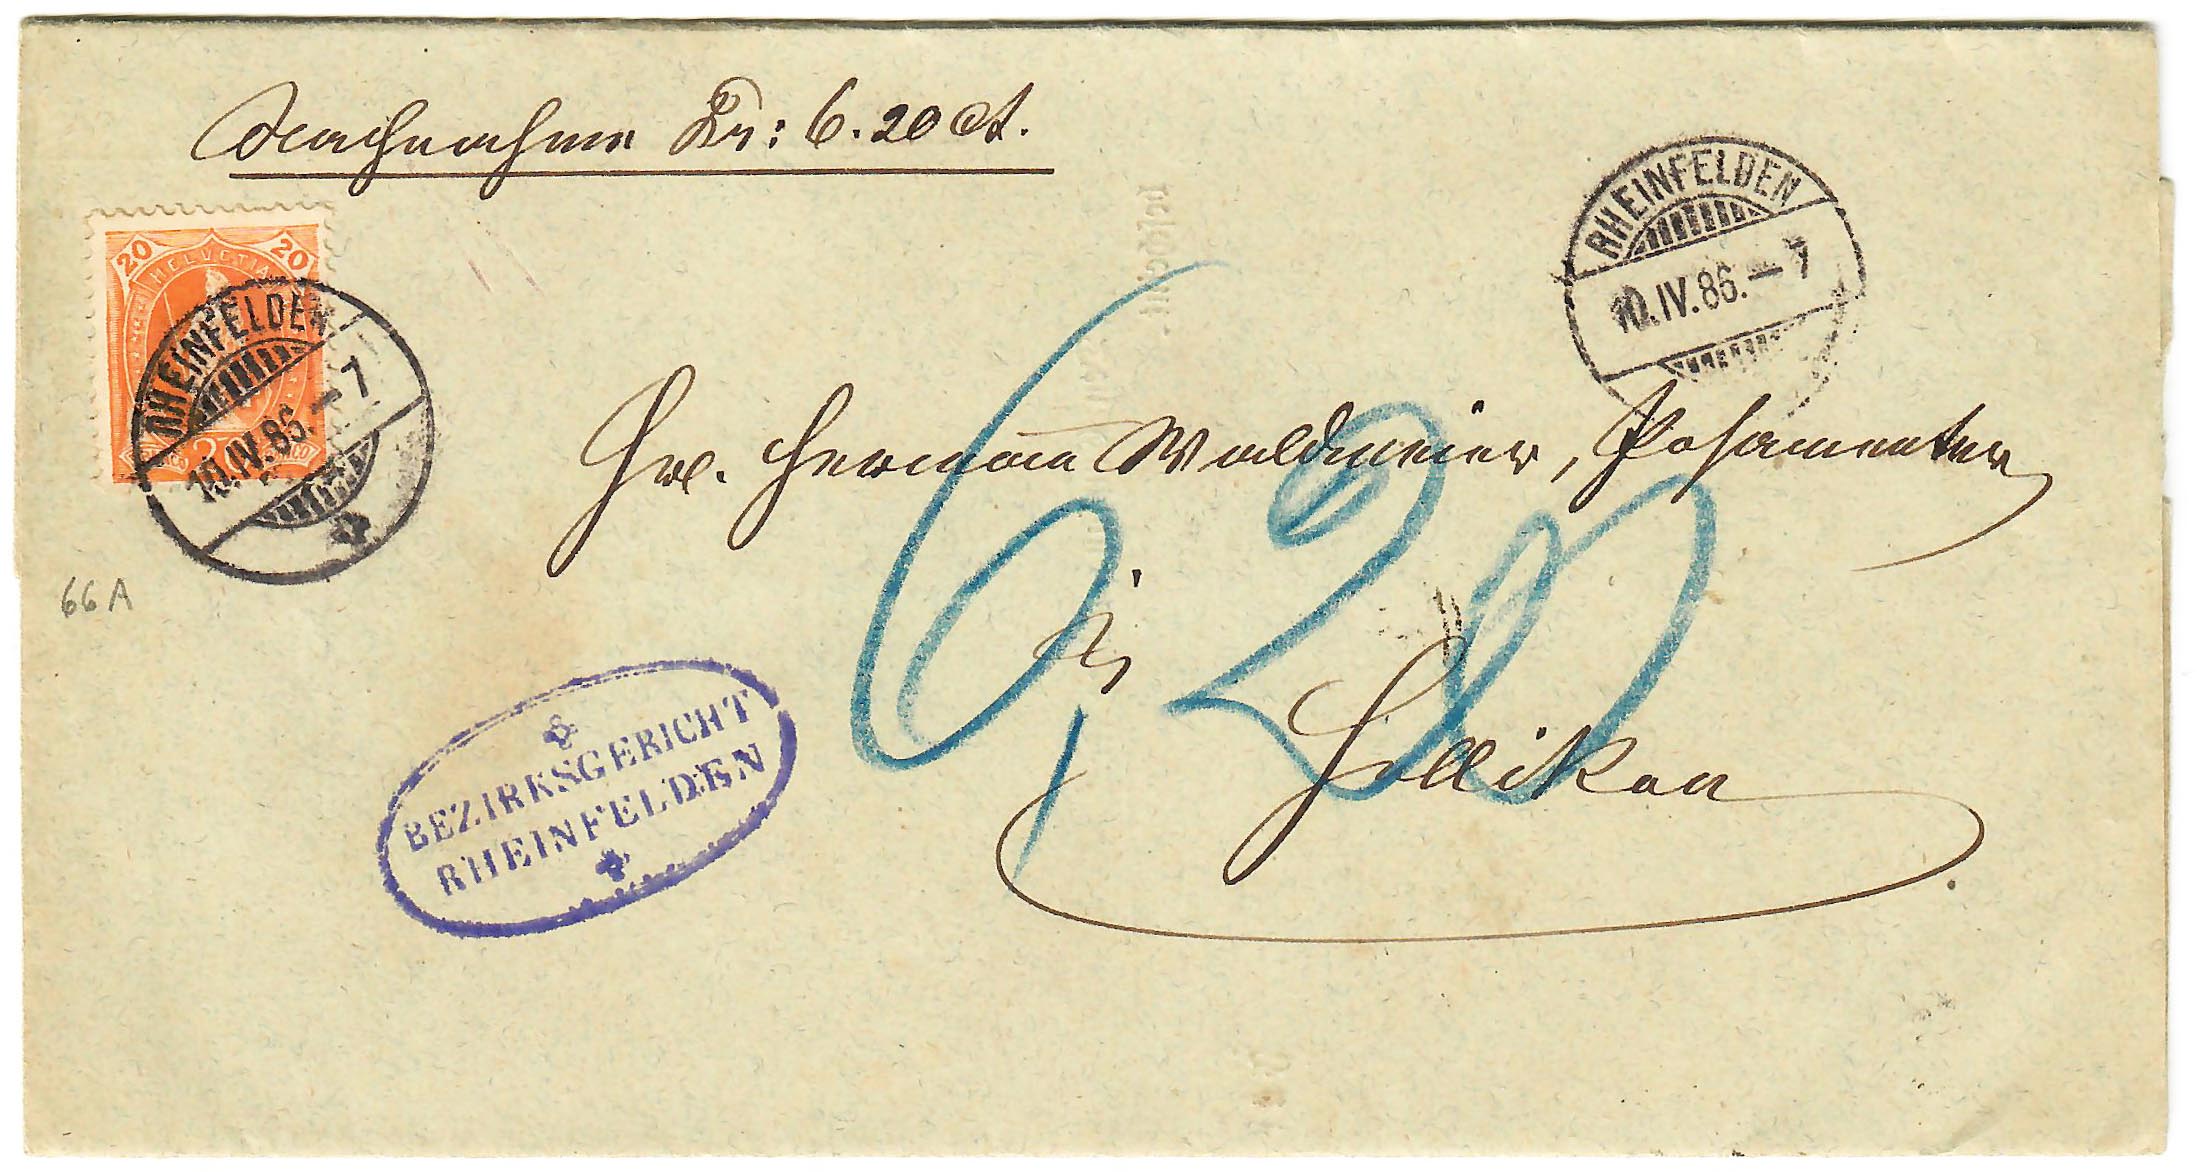 Nachnahme Fr: 6.20 Ct.
20 20
HELVETIA
RHEINFELDEN
10.IV.86.–7
RHEINFELDEN
10.IV.86.–7
Hr. Hermann Waldmeier, Posamenter
in
Hellikon
6,20
66A
BEZIRKSGERICHT
RHEINFELDEN